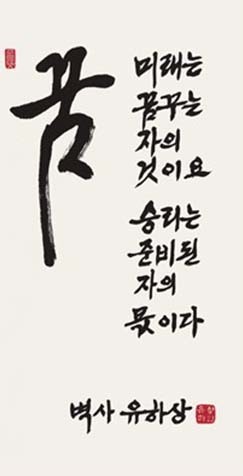 꿈
미래는
꿈꾸는
자의
것이요
승리는
준비된
자의
몫이다
벽사 유하상